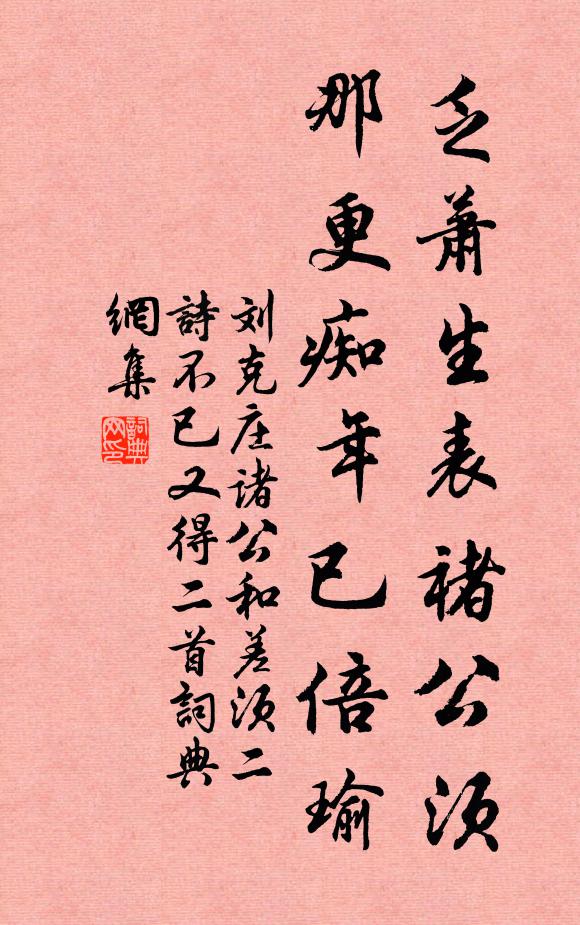 乏萧生表褚公须
那更痴年已倍瑜
刘克庄诸公和差须二
詩不已又得二首詞典
網集
詞典
网印